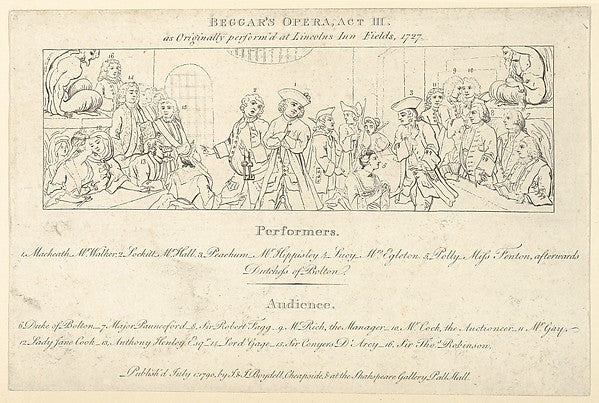 BEGGAR'S OPERA, ACT III.
as Originally perform'd at Lincolns Inn Fields, 1727.
16
14
15
13
2
1
3
11
9
10
8
Performers.
1. Macheath Mr. Walker, 2. Lockitt Mr. Hall, 3. Peachum Mr. Hippisley 4. Lucy Mrs. Egleton 5. Polly Miss Fenton, afterwards
Dutchess of Bolton.
Audience.
6. Duke of Bolton_7. Major Paunceford_8. Sir Robert Fagg_9. Mr. Rich, the Manager_10. Mr. Cock, the Auctioneer_11. Mr. Gay_
12. Lady Jane Cook_13. Anthony Henley Esqr. 14. Lord Gage_15. Sir Conyers D'Arcy_16. Sir Thos. Robinson.
Publish'd July 1: 1790, by J. & J. Boydell, Cheapside, & at the Shakspeare Gallery, Pall Mall.